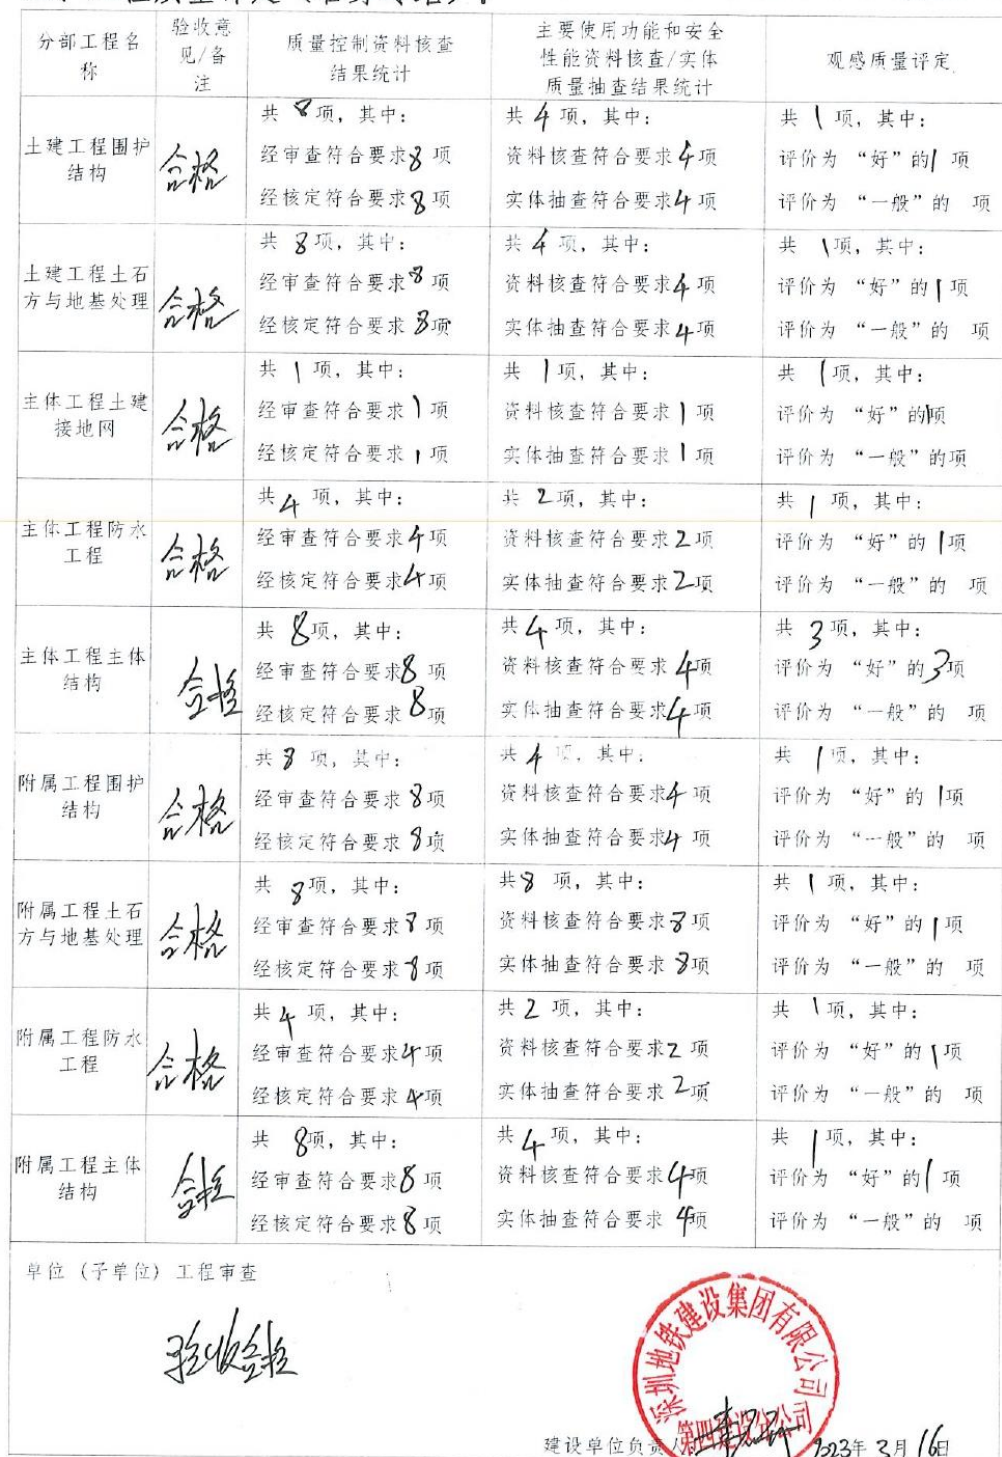 分部工程名称
验收意见/备注
质量控制资料核查结果统计
主要使用功能和安全性能资料核查/实体质量抽查结果统计
观感质量评定
土建工程围护结构
合格
共 8 项，其中：
经审查符合要求 8 项
经核定符合要求 8 项
共 4 项，其中：
资料核查符合要求 4 项
实体抽查符合要求 4 项
共 1 项，其中：
评价为 “好”的 1 项
评价为 “一般”的 项
土建工程土石方与地基处理
合格
共 8 项，其中：
经审查符合要求 8 项
经核定符合要求 8 项
共 4 项，其中：
资料核查符合要求 4 项
实体抽查符合要求 4 项
共 1 项，其中：
评价为 “好”的 1 项
评价为 “一般”的 项
主体工程土建接地网
合格
共 1 项，其中：
经审查符合要求 1 项
经核定符合要求 1 项
共 1 项，其中：
资料核查符合要求 1 项
实体抽查符合要求 1 项
共 1 项，其中：
评价为 “好”的 1 项
评价为 “一般”的项
主体工程防水工程
合格
共 4 项，其中：
经审查符合要求 4 项
经核定符合要求 4 项
共 2 项，其中：
资料核查符合要求 2 项
实体抽查符合要求 2 项
共 1 项，其中：
评价为 “好”的 1 项
评价为 “一般”的 项
主体工程主体结构
合格
共 8 项，其中：
经审查符合要求 8 项
经核定符合要求 8 项
共 4 项，其中：
资料核查符合要求 4 项
实体抽查符合要求 4 项
共 3 项，其中：
评价为 “好”的 3 项
评价为 “一般”的 项
附属工程围护结构
合格
共 8 项，其中：
经审查符合要求 8 项
经核定符合要求 8 项
共 4 项，其中：
资料核查符合要求 4 项
实体抽查符合要求 4 项
共 1 项，其中：
评价为 “好”的 1 项
评价为 “一般”的 项
附属工程土石方与地基处理
合格
共 8 项，其中：
经审查符合要求 8 项
经核定符合要求 8 项
共 8 项，其中：
资料核查符合要求 8 项
实体抽查符合要求 8 项
共 1 项，其中：
评价为 “好”的 1 项
评价为 “一般”的 项
附属工程防水工程
合格
共 4 项，其中：
经审查符合要求 4 项
经核定符合要求 4 项
共 2 项，其中：
资料核查符合要求 2 项
实体抽查符合要求 2 项
共 1 项，其中：
评价为 “好”的 1 项
评价为 “一般”的 项
附属工程主体结构
合格
共 8 项，其中：
经审查符合要求 8 项
经核定符合要求 8 项
共 4 项，其中：
资料核查符合要求 4 项
实体抽查符合要求 4 项
共 1 项，其中：
评价为 “好”的 1 项
评价为 “一般”的 项
单位（子单位）工程审查
验收合格
深圳地铁建设集团有限公司
第四建设分公司
建设单位负责人
2023年 3月 16日